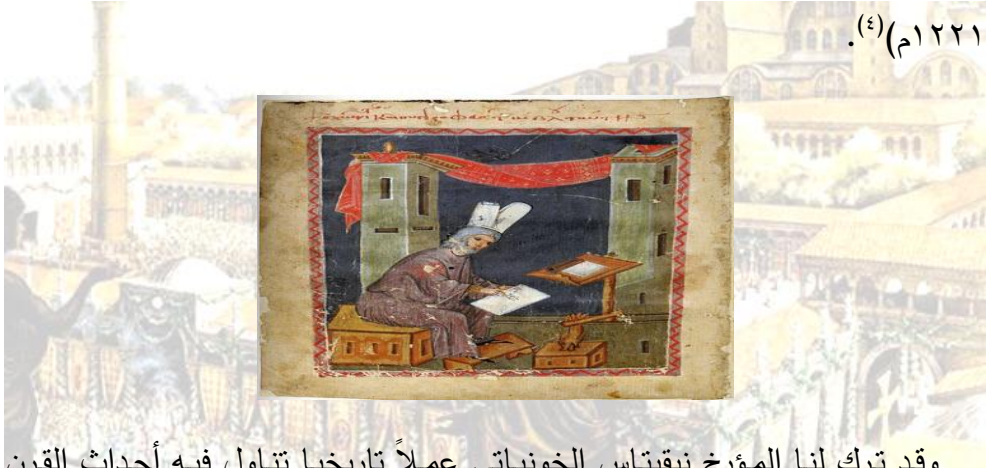 ١٢٢١م)(٤).
وقد ترك لنا المؤرخ نيقيتاس الخونياتي عملاً تاريخيا تناول فيه أحداث القرن